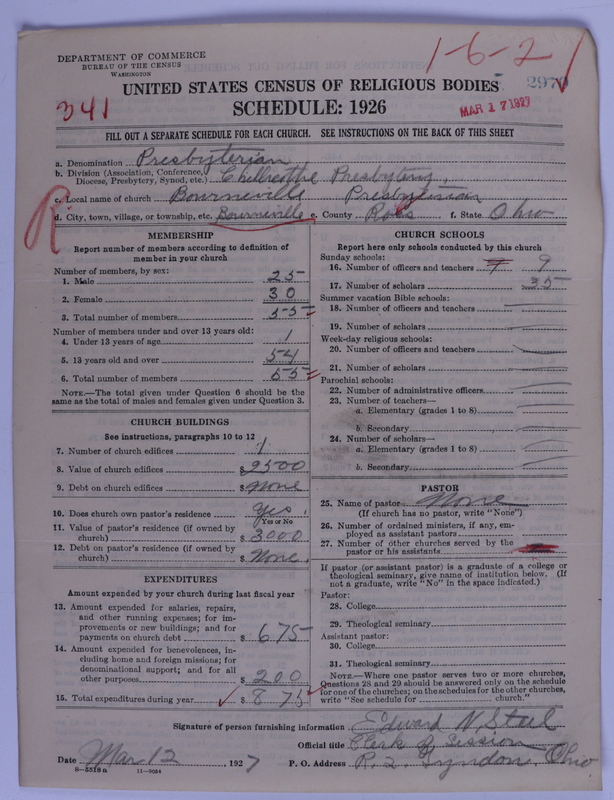 DEPARTMENT OF COMMERCE
BUREAU OF THE CENSUS
WASHINGTON
1-6-2
2970
341
UNITED STATES CENSUS OF RELIGIOUS BODIES
SCHEDULE: 1926
MAR 17 1927
FILL OUT A SEPARATE SCHEDULE FOR EACH CHURCH. SEE INSTRUCTIONS ON THE BACK OF THIS SHEET
a. Denomination Presbyterian
b. Division (Association, Conference, Diocese, Presbytery, Synod, etc.) Chillicothe Presbytery,
c. Local name of church Bourneville Presbyterian
d. City, town, village, or township, etc. Bourneville e. County Ross f. State Ohio
R
MEMBERSHIP
Report number of members according to definition of
member in your church
Number of members, by sex:
1. Male 25
2. Female 30
3. Total number of members 55
Number of members under and over 13 years old:
4. Under 13 years of age 1
5. 13 years old and over 54
6. Total number of members 55
NOTE.—The total given under Question 6 should be
same as the total of males and females given under Question 3.
CHURCH BUILDINGS
See instructions, paragraphs 10 to 12
7. Number of church edifices 1
8. Value of church edifices $2500
9. Debt on church edifices $None
10. Does church own pastor's residence Yes
Yes or No
11. Value of pastor's residence (if owned by
church) $3000
12. Debt on pastor's residence (if owned by
church) $None
EXPENDITURES
Amount expended by your church during last fiscal year
13. Amount expended for salaries, repairs,
and other running expenses; for im-
provements or new buildings; and for
payments on church debt $675
14. Amount expended for benevolences, in-
cluding home and foreign missions; for
denominational support; and for all
other purposes $200
15. Total expenditures during year $875
CHURCH SCHOOLS
Report here only schools conducted by this church
Sunday schools:
16. Number of officers and teachers 9 9
17. Number of scholars 35
Summer vacation Bible schools:
18. Number of officers and teachers
19. Number of scholars
Week-day religious schools:
20. Number of officers and teachers
21. Number of scholars
Parochial schools:
22. Number of administrative officers
23. Number of teachers—
a. Elementary (grades 1 to 8)
b. Secondary
24. Number of scholars—
a. Elementary (grades 1 to 8)
b. Secondary
PASTOR
25. Name of pastor None
(If church has no pastor, write "None")
26. Number of ordained ministers, if any, em-
ployed as assistant pastors
27. Number of other churches served by the
pastor or his assistants
If pastor (or assistant pastor) is a graduate of a college or
theological seminary, give name of institution below. (If
not a graduate, write "No" in the space indicated.)
Pastor:
28. College
29. Theological seminary
Assistant pastor:
30. College
31. Theological seminary
NOTE.—Where one pastor serves two or more churches,
Questions 28 and 29 should be answered only on the schedule
for one of the churches; on the schedules for the other churches,
write "See schedule for church."
Signature of person furnishing information Edward N. Steel
Official title Clerk of Session
Date Mar 12, 1927 P. O. Address R. 2, Lyndon, Ohio
8-5518a 11-9084